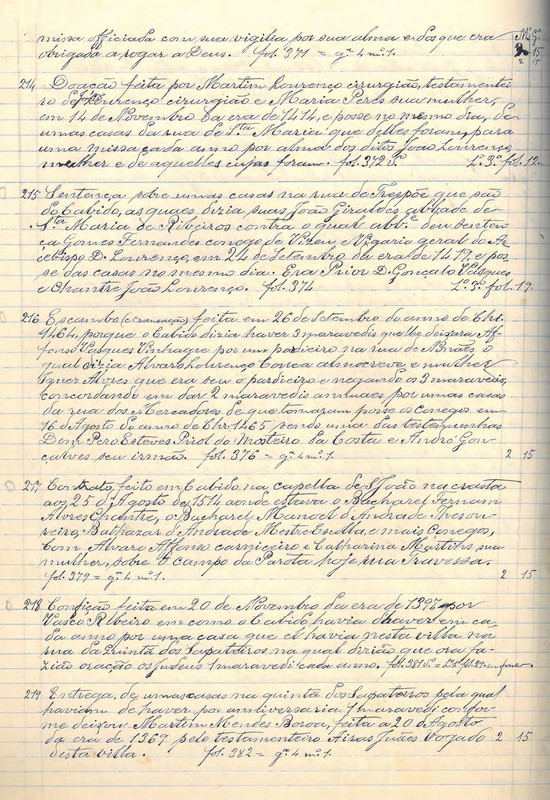 missa officiada com sua vigilia por sua alma e dos que era
obrigado a rogar a Deus. fol. 371 = gª 4 mº 1.
214 Doação feita por Martim Lourenço cirurgião, testamentei
ro de Lourenço cirurgião e Maria Peres sua mulher,
em 14 de Novembro da era de 1414, e posse no mesmo dia, de
umas casas da rua de Stª Maria que delles foram, para
uma missa cada anno por alma dos ditos João Lourenço,
mulher e de aquelles cujas foram. fol. 372 Lº 3º fol. 12.
215 Sentença sobre umas casas na rua de Trespõe que são
do Cabido, as quaes dizia suas João Giraldes abbade de
Stª Maria de Ribeiros contra o qual deu senten
ça Gomes Fernandes conego de Vizeu, e Vigario geral do Ar
cebispo D. Lourenço, em 24 de Setembro da era de 1419, e pos
se das casas no mesmo dia. Era Prior D. Gonçalo Vasques
e Chantre João Lourenço. fol. 374 Lº 3º fol. 19.
216 Escambo feita em 26 de Setembro do anno de Chr.
1464, porque o Cabido dizia haver 3 maravedis que lhe deixara Af-
fonso Vasques Vinhagre por um pardieiro na rua de o
qual dizia Alvaro Lourenço Correa almocreve e mulher
Ignez Alvres que era seu o pardieiro e negando os 3 maravedis,
concordando em dar 2 maravedis annuaes por umas casas
da rua dos Mercadores de que tomaram posse os Conegos em
16 de Agosto do anno de Chr 1465 sendo uma das testemunhas
Dom Pero Esteves Priol do Mosteiro da Costa e André Gon-
çalves seu irmão. fol. 376 = gª 4 mº 1. 2 15
217 Contrato, feito em Cabido na capella de S. João na crasta
aos 25 de Agosto de 1514 aonde estava o Bacharel Fernam
Alvres Chantre, o Bacharel Manoel d'Andrade Thesou-
reiro, Balthazar d'Andrade Mestre Escolla, e mais Conegos,
com Alvaro Affonso carniceiro e Catharina Martins, sua
mulher, sobre o campo da Parota hoje rua Travessa.
fol. 379 = gª 4 mº 1. 2 15
218 Condição feita em 20 de Novembro da era de 1397 por
Vasco Ribeiro em como o Cabido havia d'haver em ca-
da anno por uma casa que el havia nesta villa na
rua da Quinta dos Sapateiros na qual dizião que ora fa-
zião oração os Judeus 1 maravedi cada anno. fol. 381
219 Entrega, de umas casas na quinta dos Sapateiros pela qual
haviam de haver por anniversaria 1 maravedi confor-
me deixou Martim Mendes Boroa, feita a 20 d'Agosto
da era de 1369 pelo testamenteiro Airas Juães 2 15
desta villa. fol. 382 = gª 4 mº 1.